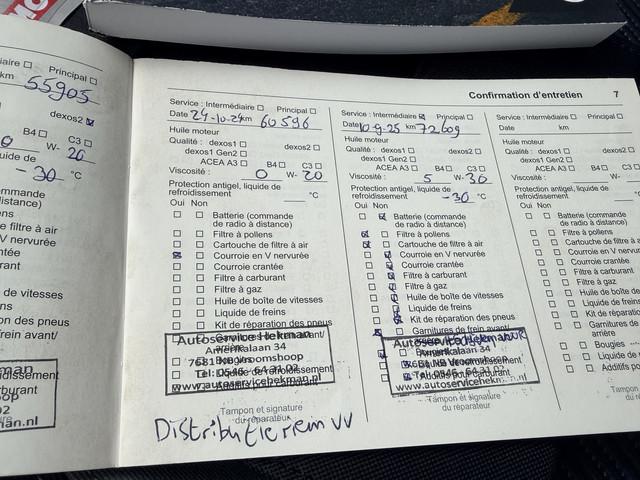 Confirmation d'entretien 7
Principal
km 55905
dexos2
B4 C3
W- 20
-30 °C
Service : Intermédiaire Principal
Date 24-10-24 km 60596
Huile moteur
Qualité : dexos1 dexos2
dexos1 Gen2
ACEA A3 B4 C3
Viscosité : 0 W- 20
Protection antigel, liquide de
refroidissement °C
Oui Non
Batterie (commande
de radio à distance)
Filtre à pollens
Cartouche de filtre à air
Courroie en V nervurée
Courroie crantée
Filtre à carburant
Filtre à gaz
Huile de boîte de vitesses
Liquide de freins
Kit de réparation des pneus
Autoservice Hekman
Amerikalaan 34
7681 Vroomshoop
Tel: 0546 - 64 31 02
www.autoservicehekman.nl
Tampon et signature
du réparateur
Distributieriem VV
Service : Intermédiaire Principal
Date 10-9-25 km 72609
Huile moteur
Qualité : dexos1 dexos2
dexos1 Gen2
ACEA A3 B4 C3
Viscosité : 5 W- 30
Protection antigel, liquide de
refroidissement -30 °C
Oui Non
Batterie (commande
de radio à distance)
Filtre à pollens
Cartouche de filtre à air
Courroie en V nervurée
Courroie crantée
Filtre à carburant
Filtre à gaz
Huile de boîte de vitesses
Liquide de freins
Kit de réparation des pneus
Garnitures de frein avant/
Autoservice Hekman
Amerikalaan 34
Vroomshoop
Tel: 0546 - 64 31 02
www.autoservicehekman.nl
Tampon et signature
du réparateur
Service : Intermédiaire
Date km
Huile moteur
Qualité : dexos1
dexos1 Gen2
ACEA A3
Viscosité :
Protection antigel, liquide
refroidissement
Oui Non
Batterie
de radio à
Filtre à pollens
Cartouche de filtre à
Courroie en V
Courroie crantée
Filtre à carburant
Filtre à gaz
Huile de boîte
Liquide de freins
Kit de réparation
Garnitures de
arrière
Bougies
Liquide de
Additifs